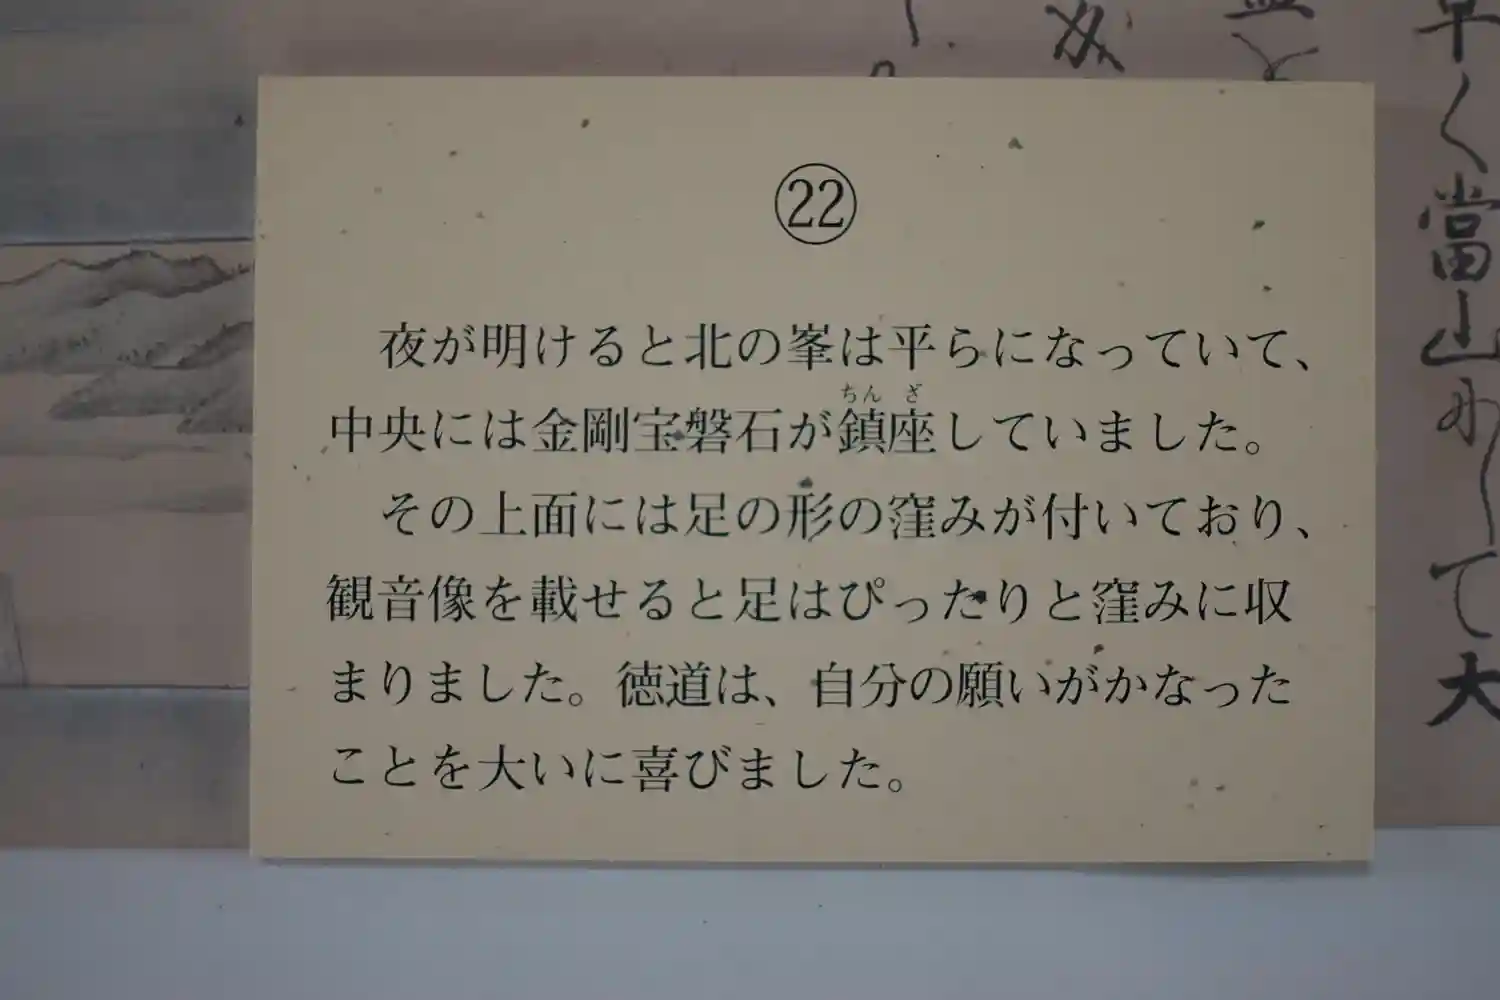 ㉒
夜が明けると北の峯は平らになっていて、
中央には金剛宝磐石が鎮座していました。
ちんざ
その上面には足の形の窪みが付いており、
観音像を載せると足はぴったりと窪みに収
まりました。徳道は、自分の願いがかなった
ことを大いに喜びました。
早く當山にして大